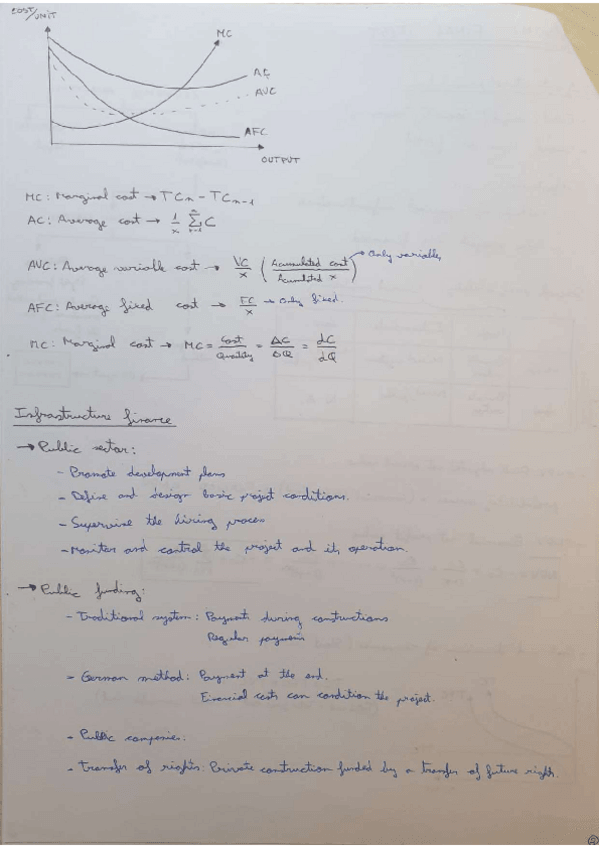 COST/UNIT
MC
AC
AVC
AFC
OUTPUT
MC: Marginal cost → TCn - TCn-1
AC: Average cost → 1/x Σ C
AVC: Average variable cost → VC/x (Acumulated cost / Acumulated x) → Only variable
AFC: Average fixed cost → FC/x → Only fixed.
MC: Marginal cost → MC = Cost/Quantity = ΔC/ΔQ = dC/dQ
Infrastructure finance
→ Public sector:
- Promote development plans
- Define and design basic project conditions.
- Supervise the hiring process
- Monitor and control the project and its operation.
→ Public funding:
- Traditional system: Payments during contructions
Regular payments
- German method: Payment at the end.
Financial costs can condition the project.
- Public companies:
- Transfer of rights: Private contruction funded by a transfer of future rights.